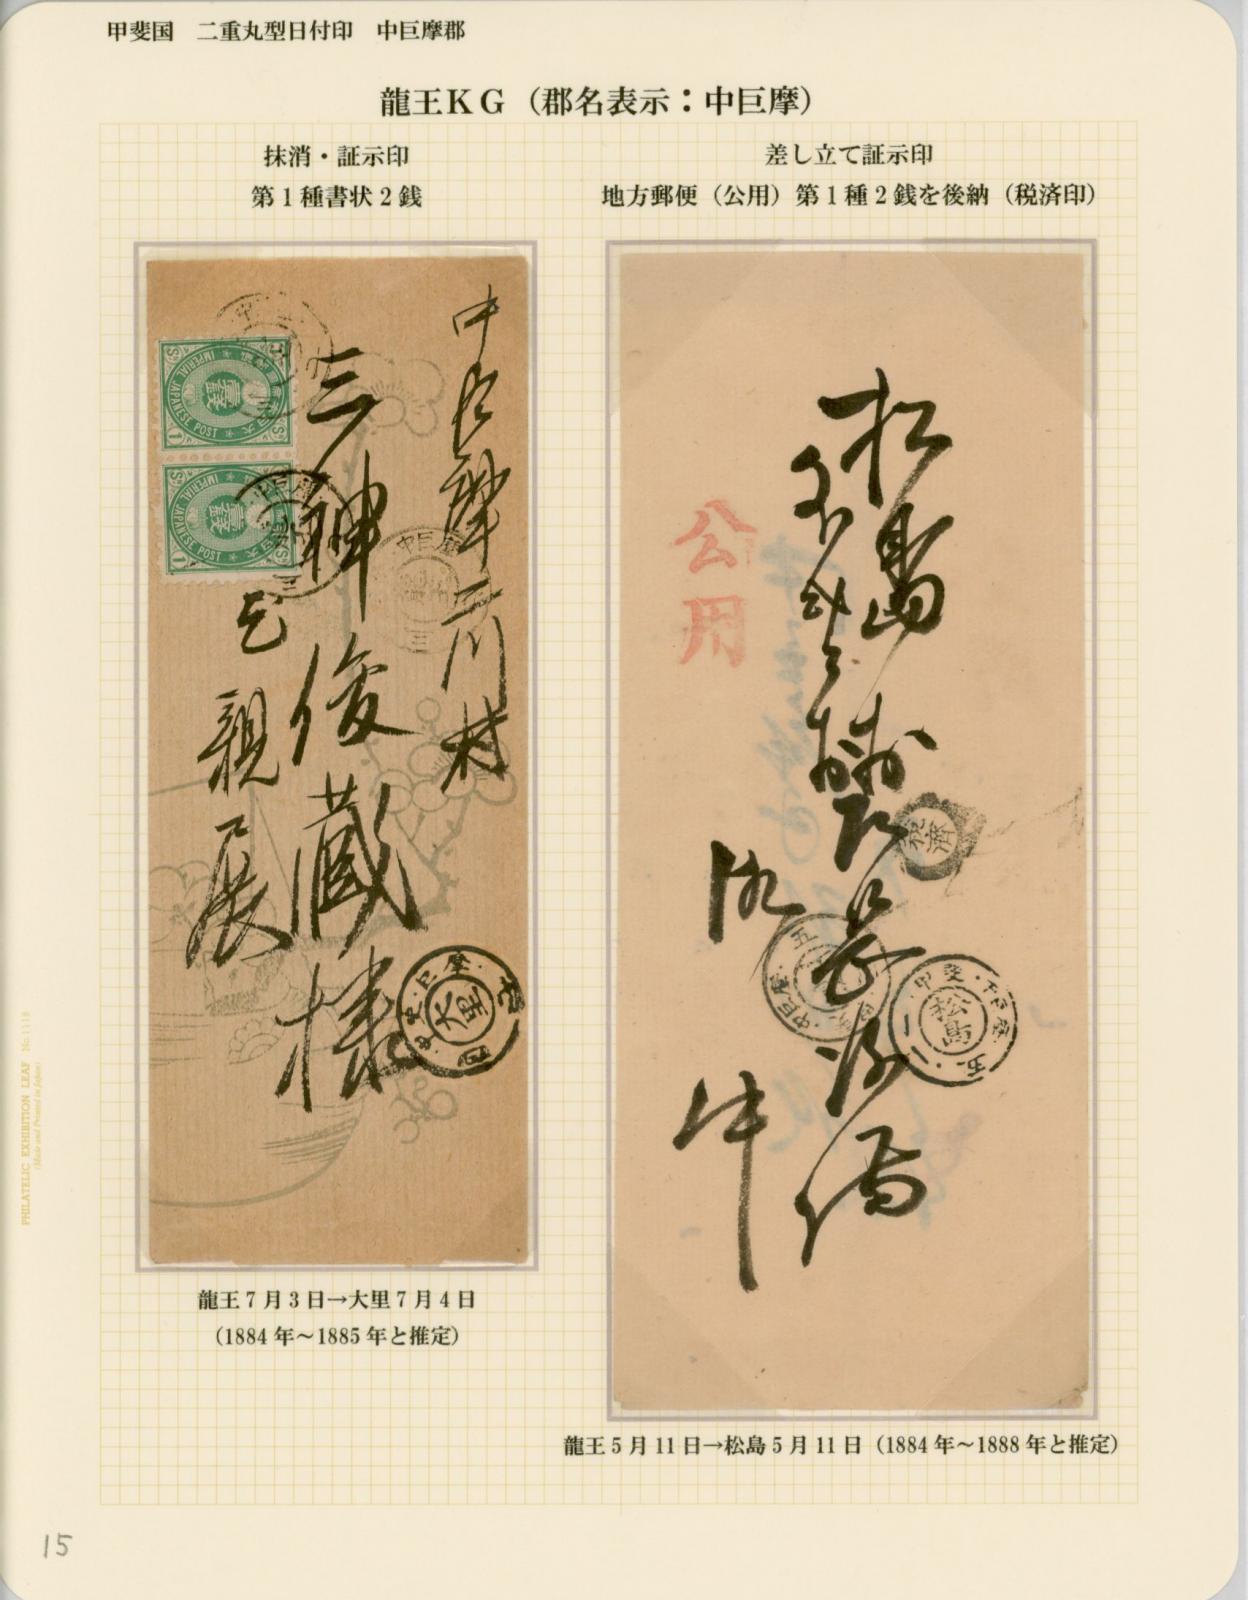 甲斐国　二重丸型日付印　中巨摩郡
龍王ＫＧ（郡名表示：中巨摩）
抹消・証示印
第１種書状２銭
差し立て証示印
地方郵便（公用）第１種２銭を後納（税済印）
IMPERIAL JAPANESE POST
1
S
IMPERIAL JAPANESE POST
1
S
中巨摩
三川村
三神俊蔵様
乞
親展
中巨摩
大里
公用
松島
税済
中巨摩
五
甲斐・中巨摩
松島
龍王７月３日→大里７月４日
（1884年～1885年と推定）
龍王５月11日→松島５月11日（1884年～1888年と推定）
PHILATELIC EXHIBITION LEAF No.1118
(Made and Printed in Japan)
15